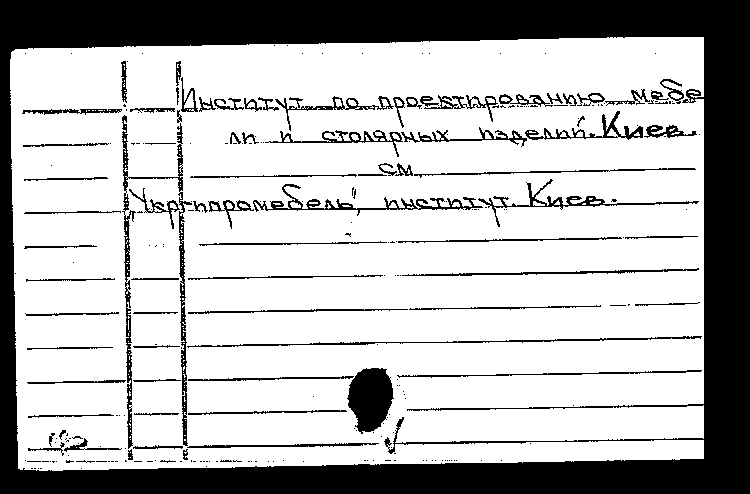 Институт по проектированию мебе
ли и столярных изделий. Киев.
см.
"Укргипромебель", институт. Киев.